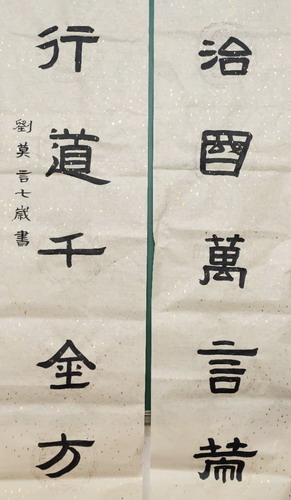 治國萬言策
行道千金方
劉莫言七歲書